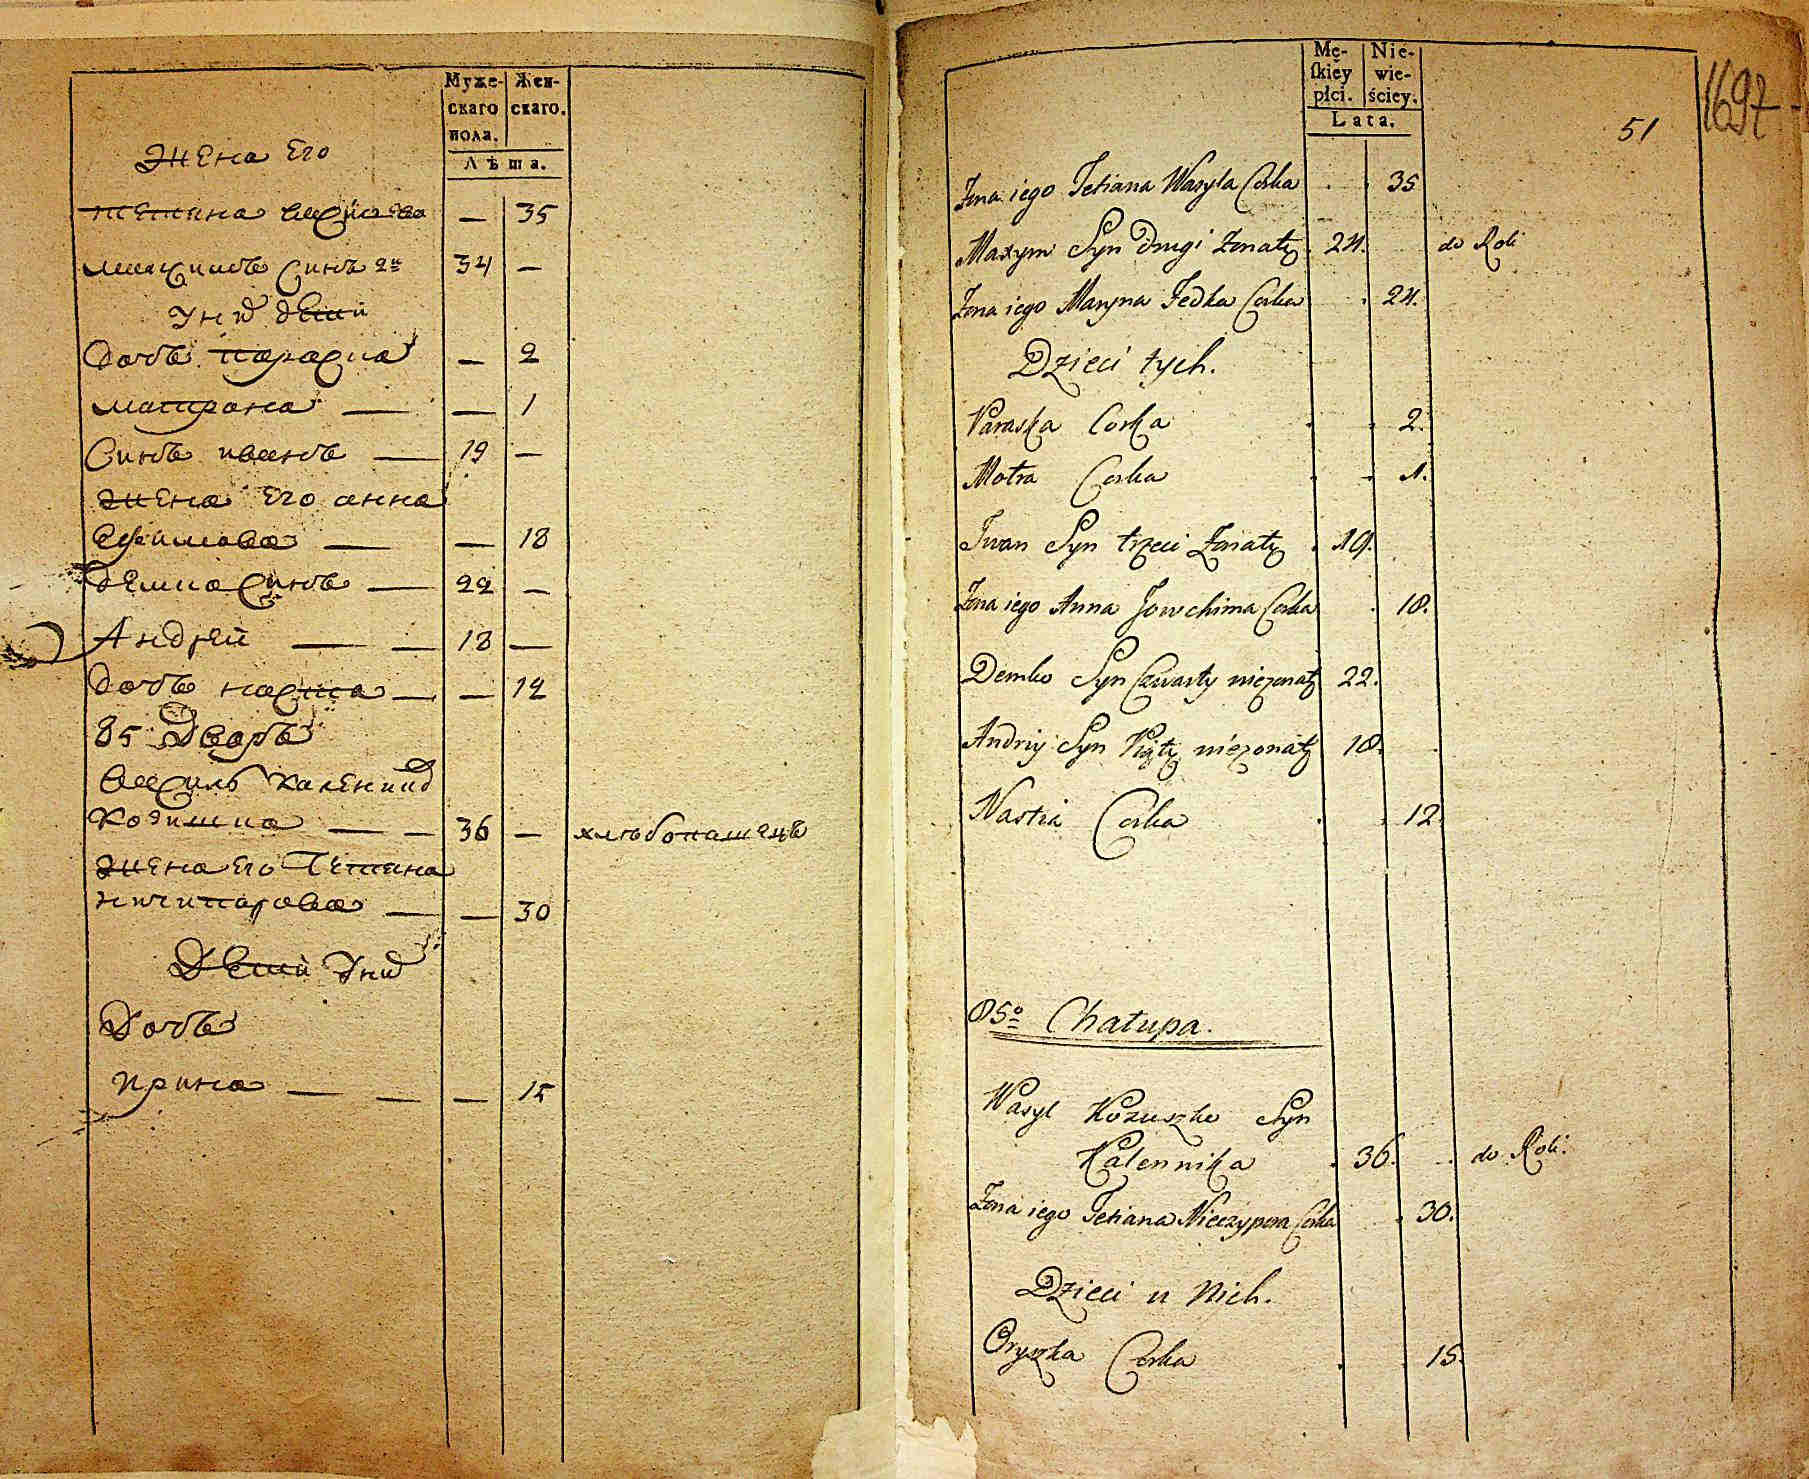 Муже-
скаго
пола.
Жен-
скаго.
Лѣта.
Жена его
тетяна василева — 35
максимъ синъ 2й 34 —
у них детей
дочь параска — 2
матрона — — 1
Синъ иванъ — 19 —
жена его анна
— — 18
демко синъ — 22 —
Андрей — — 18 —
дочь настя — — 12
85 Дворъ
василь каленика
кожушка — — 36 — хлѣбопашецъ
жена его Тетяна
ничипорова — — 30
Детей у них
Дочь
ирина — — — 15
Mę-
skiéy
płci.
Nie-
wie-
ściey.
Lata.
1697
51
Żona iego Tetiana Wasyla Corka . . 35
Maxym Syn drugi żonaty . 24. do Roli
Żona iego Maryna Fedka Corka . 24.
Dzieci tych.
Paraska Corka . . 2.
Motra Corka . . 1.
Iwan Syn trzeci żonaty . 19.
Żona iego Anna Jowchima Corka . 18.
Demko Syn Czwarty nieżonaty 22.
Andriy Syn Piąty nieżonaty 18.
Nastia Corka . . 12.
85o Chałupa.
Wasyl Kożuszko Syn
Kalennika . 36. . do Roli.
Żona iego Tetiana Nieczypora Corka . 30.
Dzieci u Nich.
Oryszka Corka . . 15.